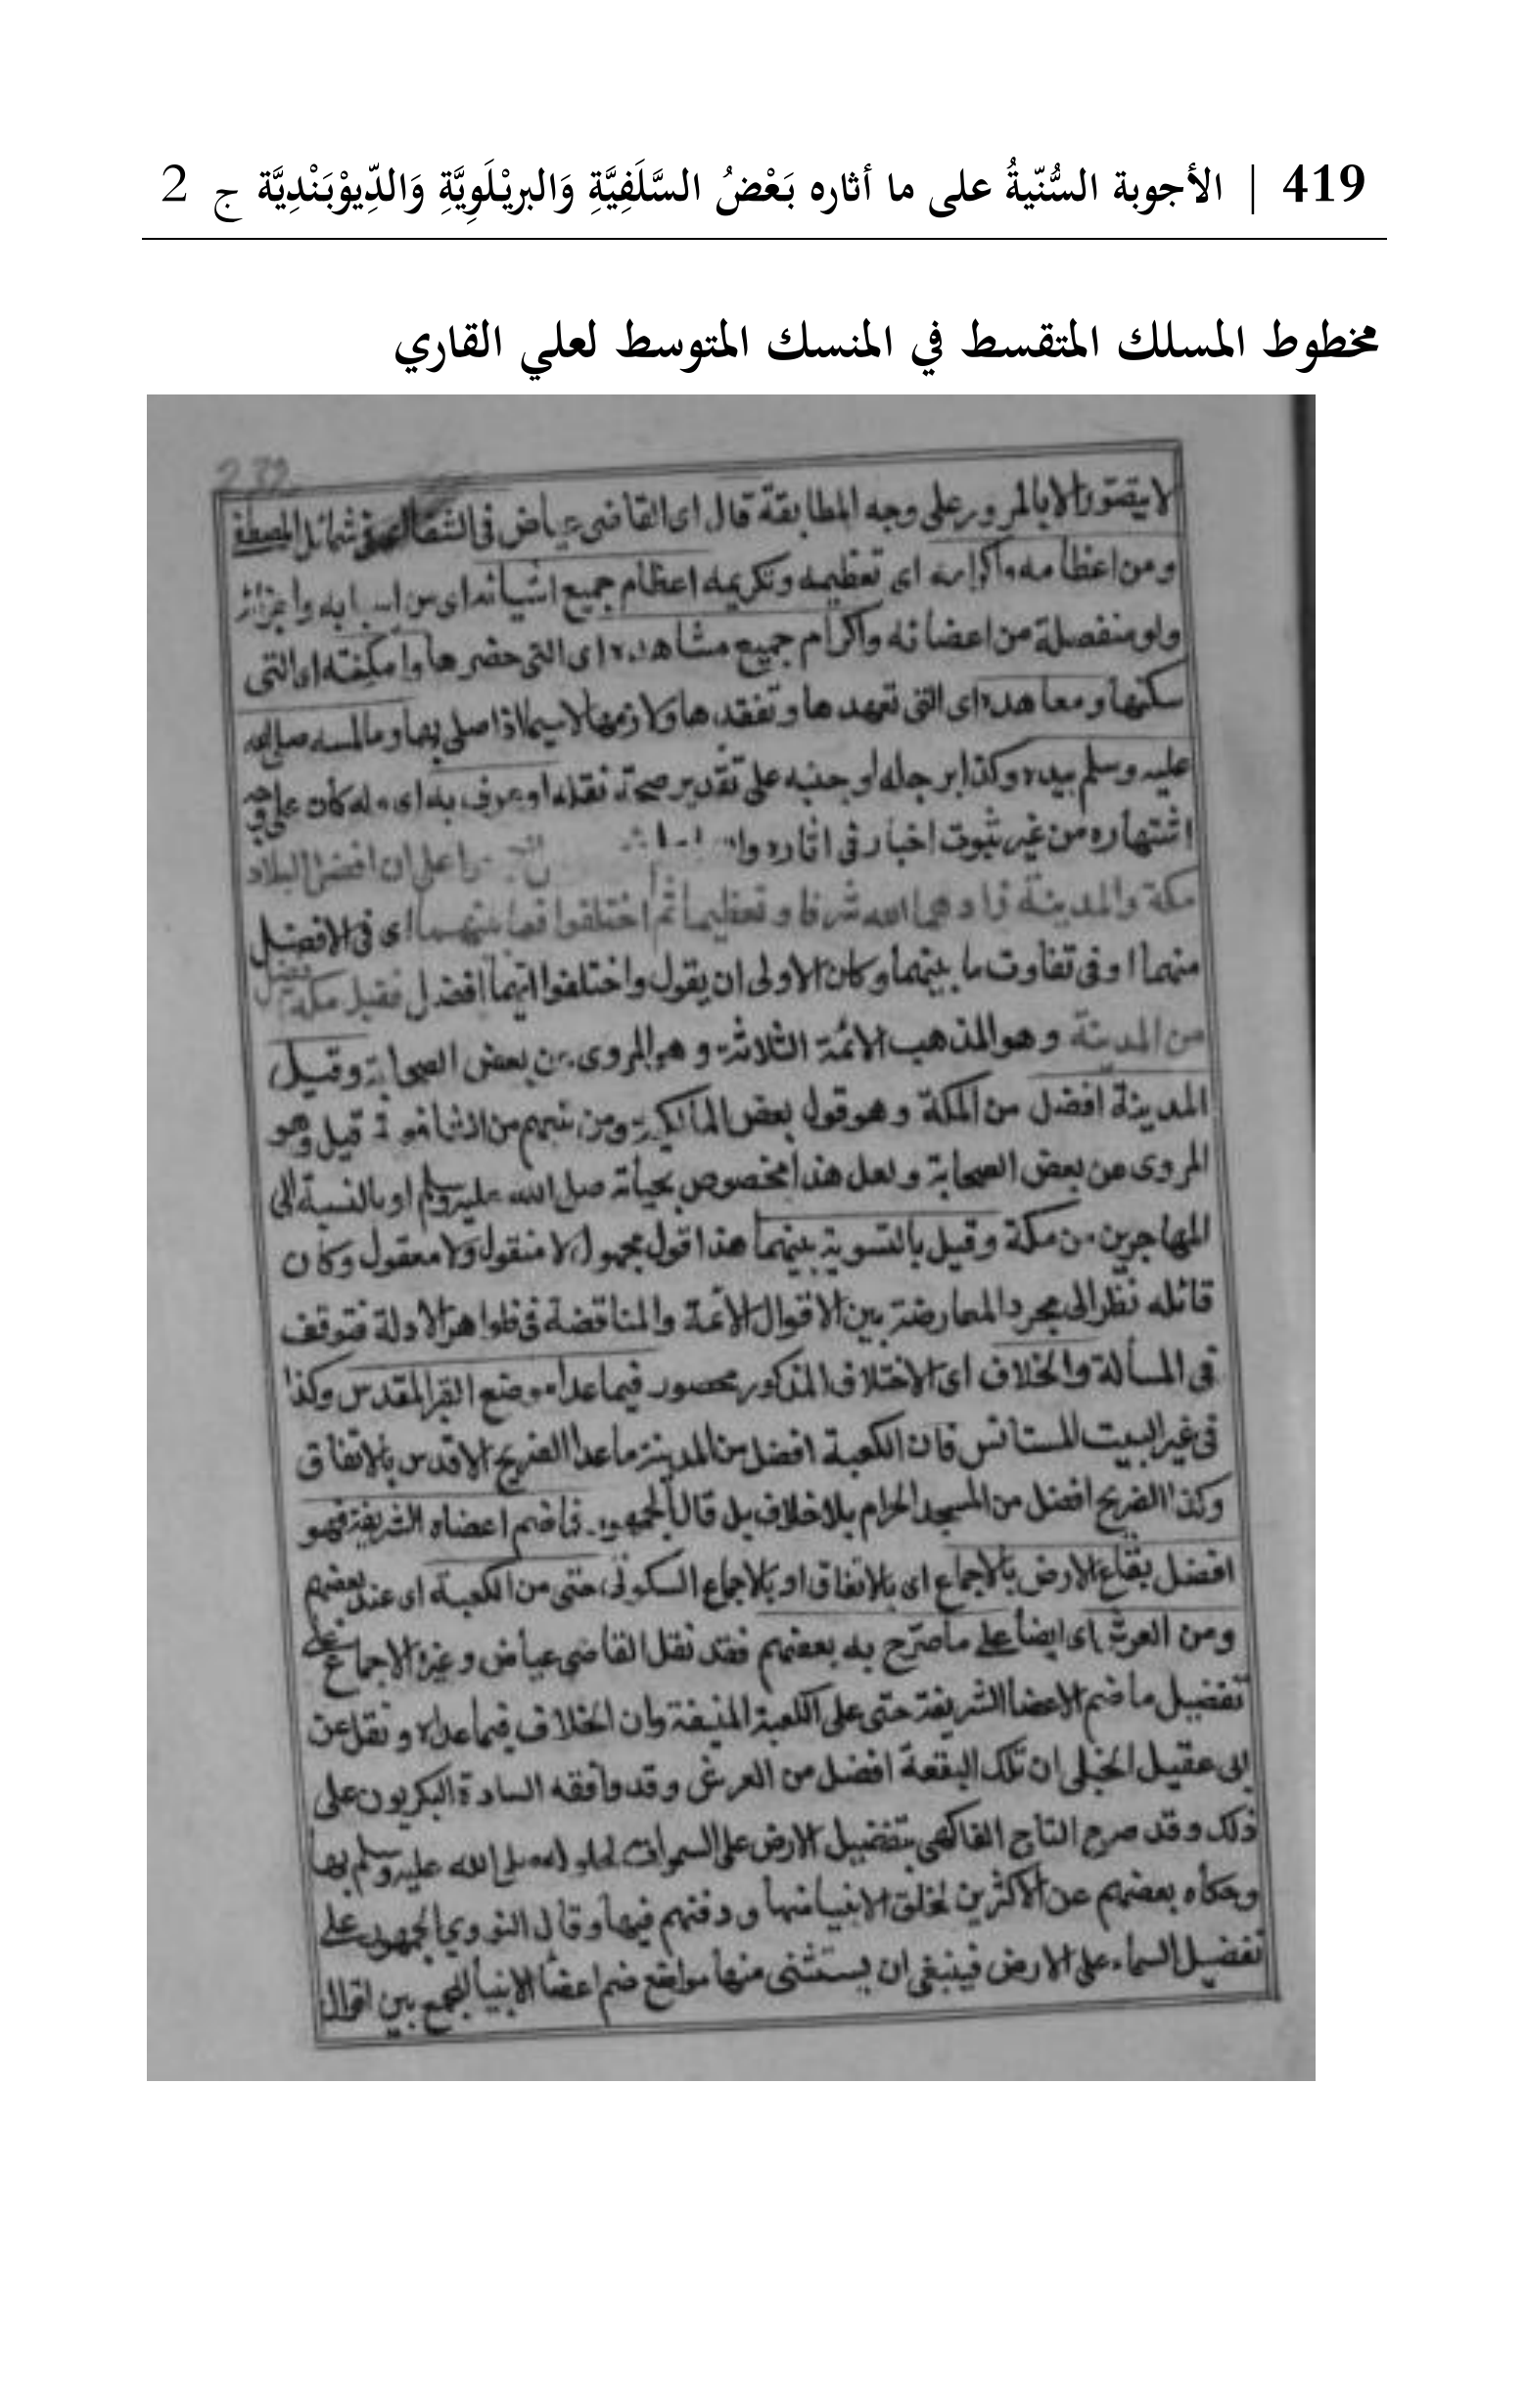 419 | الأجوبة السُّنّيةُ على ما أثاره بَعْضُ السَّلَفِيَّةِ وَالبريْلَوِيَّةِ وَالدِّيوْبَنْدِيَّة ج 2
مخطوط المسلك المتقسط في المنسك المتوسط لعلي القاري
لا يتصور الا بالمرور على وجه المطابقة قال اى القاضى عياض فى الشفا شمائل المصطفى
ومن اعظامه واكرامه اى تعظيمه وتكريمه اعظام جميع اشيائه اى من اسبابه
ولو منفصلة من اعضائه واكرام جميع مشاهده اى التى حضرها وامكنته اى التى
سكنها ومعاهده اى التى تعهدها وتفقدها ولازمها لا سيما اذا صلى بها وما لمسه صلى الله
عليه وسلم بيده وكذا برجله او جنبه على تقدير صحة نقله او عرف به اى وله كان على وجه
اشتهاره من غير ثبوت اخبار فى اثاره اعلم ان افضل البلاد
مكة والمدينة زادهما الله شرفا وتعظيما ثم اختلفوا فيما بينهما اى فى الافضل
منهما او فى تفاوت ما بينهما وكان الاولى ان يقول واختلفوا ايهما افضل فقيل مكة افضل
من المدينة وهو المذهب الائمة الثلاثة وهو المروى عن بعض الصحابة وقيل
المدينة افضل من المكة وهو قول بعض المالكية ومن تبعهم من الشافعية قيل وهو
المروى عن بعض الصحابة ولعل هذا مخصوص بحياته صلى الله عليه وسلم او بالنسبة الى
المهاجرين من مكة وقيل بالتسوية بينهما هذا قول مجهول لا منقول ولا معقول وكان
قائله نظر الى مجرد المعارضة بين الاقوال الائمة والمناقضة فى ظواهر الادلة فتوقف
فى المسألة والخلاف اى الاختلاف المذكور محصور فيما عدا موضع القبر المقدس وكذا
فى غير البيت المستانس فان الكعبة افضل من المدينة ما عدا الضريح الاقدس بالاتفاق
وكذا الضريح افضل من المسجد الحرام بلا خلاف بل قال الجمهور فما ضم اعضاه الشريفة فهو
افضل بقاع الارض بالاجماع اى بالاتفاق او بالاجماع السكوتى حتى من الكعبة اى عند بعضهم
ومن العرش اى ايضا على ما صرح به بعضهم فقد نقل القاضى عياض وغيره الاجماع على
تفضيل ما ضم الاعضا الشريفة حتى على الكعبة المنيفة وان الخلاف فيما عداه ونقل عن
ابى عقيل الحنبلى ان تلك البقعة افضل من العرش وقد وافقه السادة البكريون على
ذلك وقد صرح التاج الفاكهى بتفضيل الارض على السموات لحلوله صلى الله عليه وسلم بها
وحكاه بعضهم عن الاكثرين لخلق الانبيا منها ودفنهم فيها وقال النووي الجمهور على
تفضيل السماء على الارض فينبغى ان يستثنى منها مواضع ضم اعضا الانبيا للجمع بين اقوال